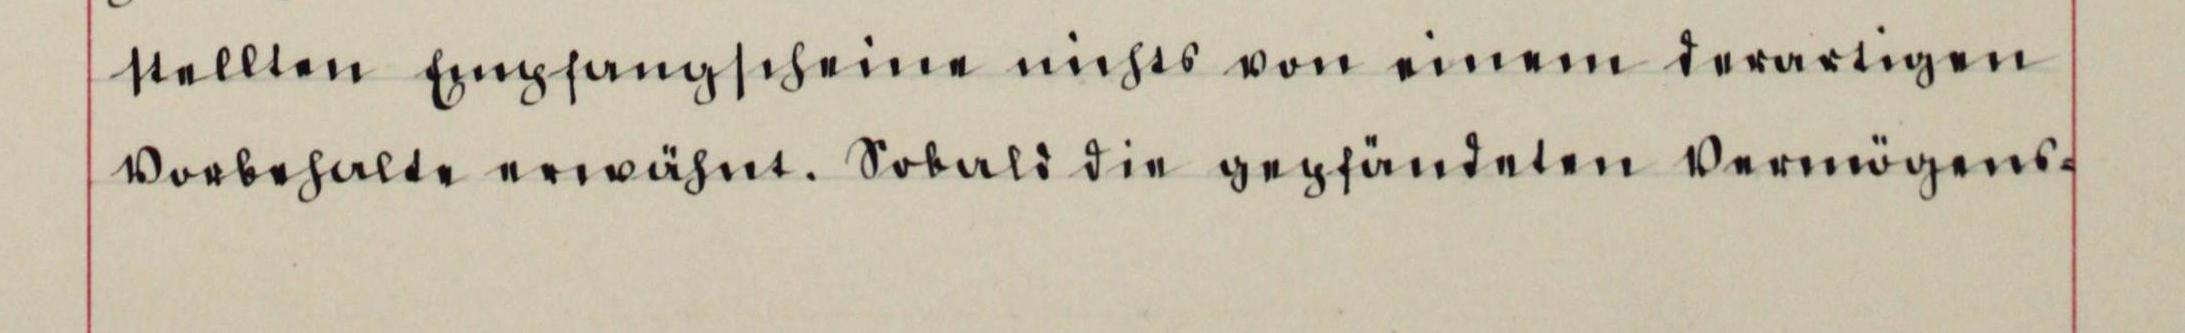 stellten Empfangscheine nichts von einem derartigen
Vorbehalte erwähnt. Sobald die gepfändeten Vermögens-